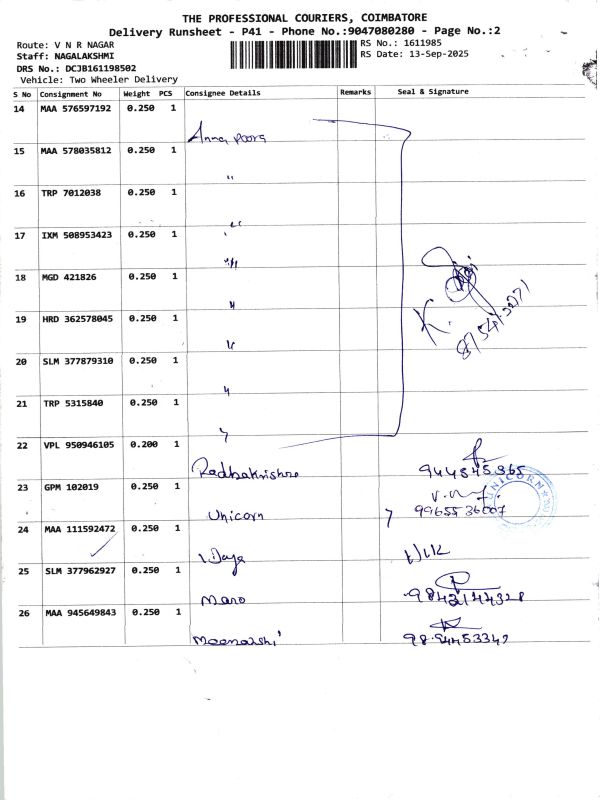 THE PROFESSIONAL COURIERS, COIMBATORE
Delivery Runsheet - P41 - Phone No.:9047080280 - Page No.:2
Route: V N R NAGAR
RS No.: 1611985
Staff: NAGALAKSHMI
RS Date: 13-Sep-2025
DRS No.: DCJB161198502
Vehicle: Two Wheeler Delivery
S No Consignment No Weight PCS Consignee Details Remarks Seal & Signature
14 MAA 576597192 0.250 1
Anna poorna
15 MAA 578035812 0.250 1
"
16 TRP 7012038 0.250 1
"
17 IXM 508953423 0.250 1
"
18 MGD 421826 0.250 1
"
19 HRD 362578045 0.250 1
"
20 SLM 377879310 0.250 1
"
21 TRP 5315840 0.250 1
"
K.
22 VPL 950946105 0.200 1
Radhakrishna
23 GPM 102019 0.250 1
Unicorn 9965536007
UNICORN
24 MAA 111592472 0.250 1
Vijaya
25 SLM 377962927 0.250 1
Mano 9842144328
26 MAA 945649843 0.250 1
Meenakshi